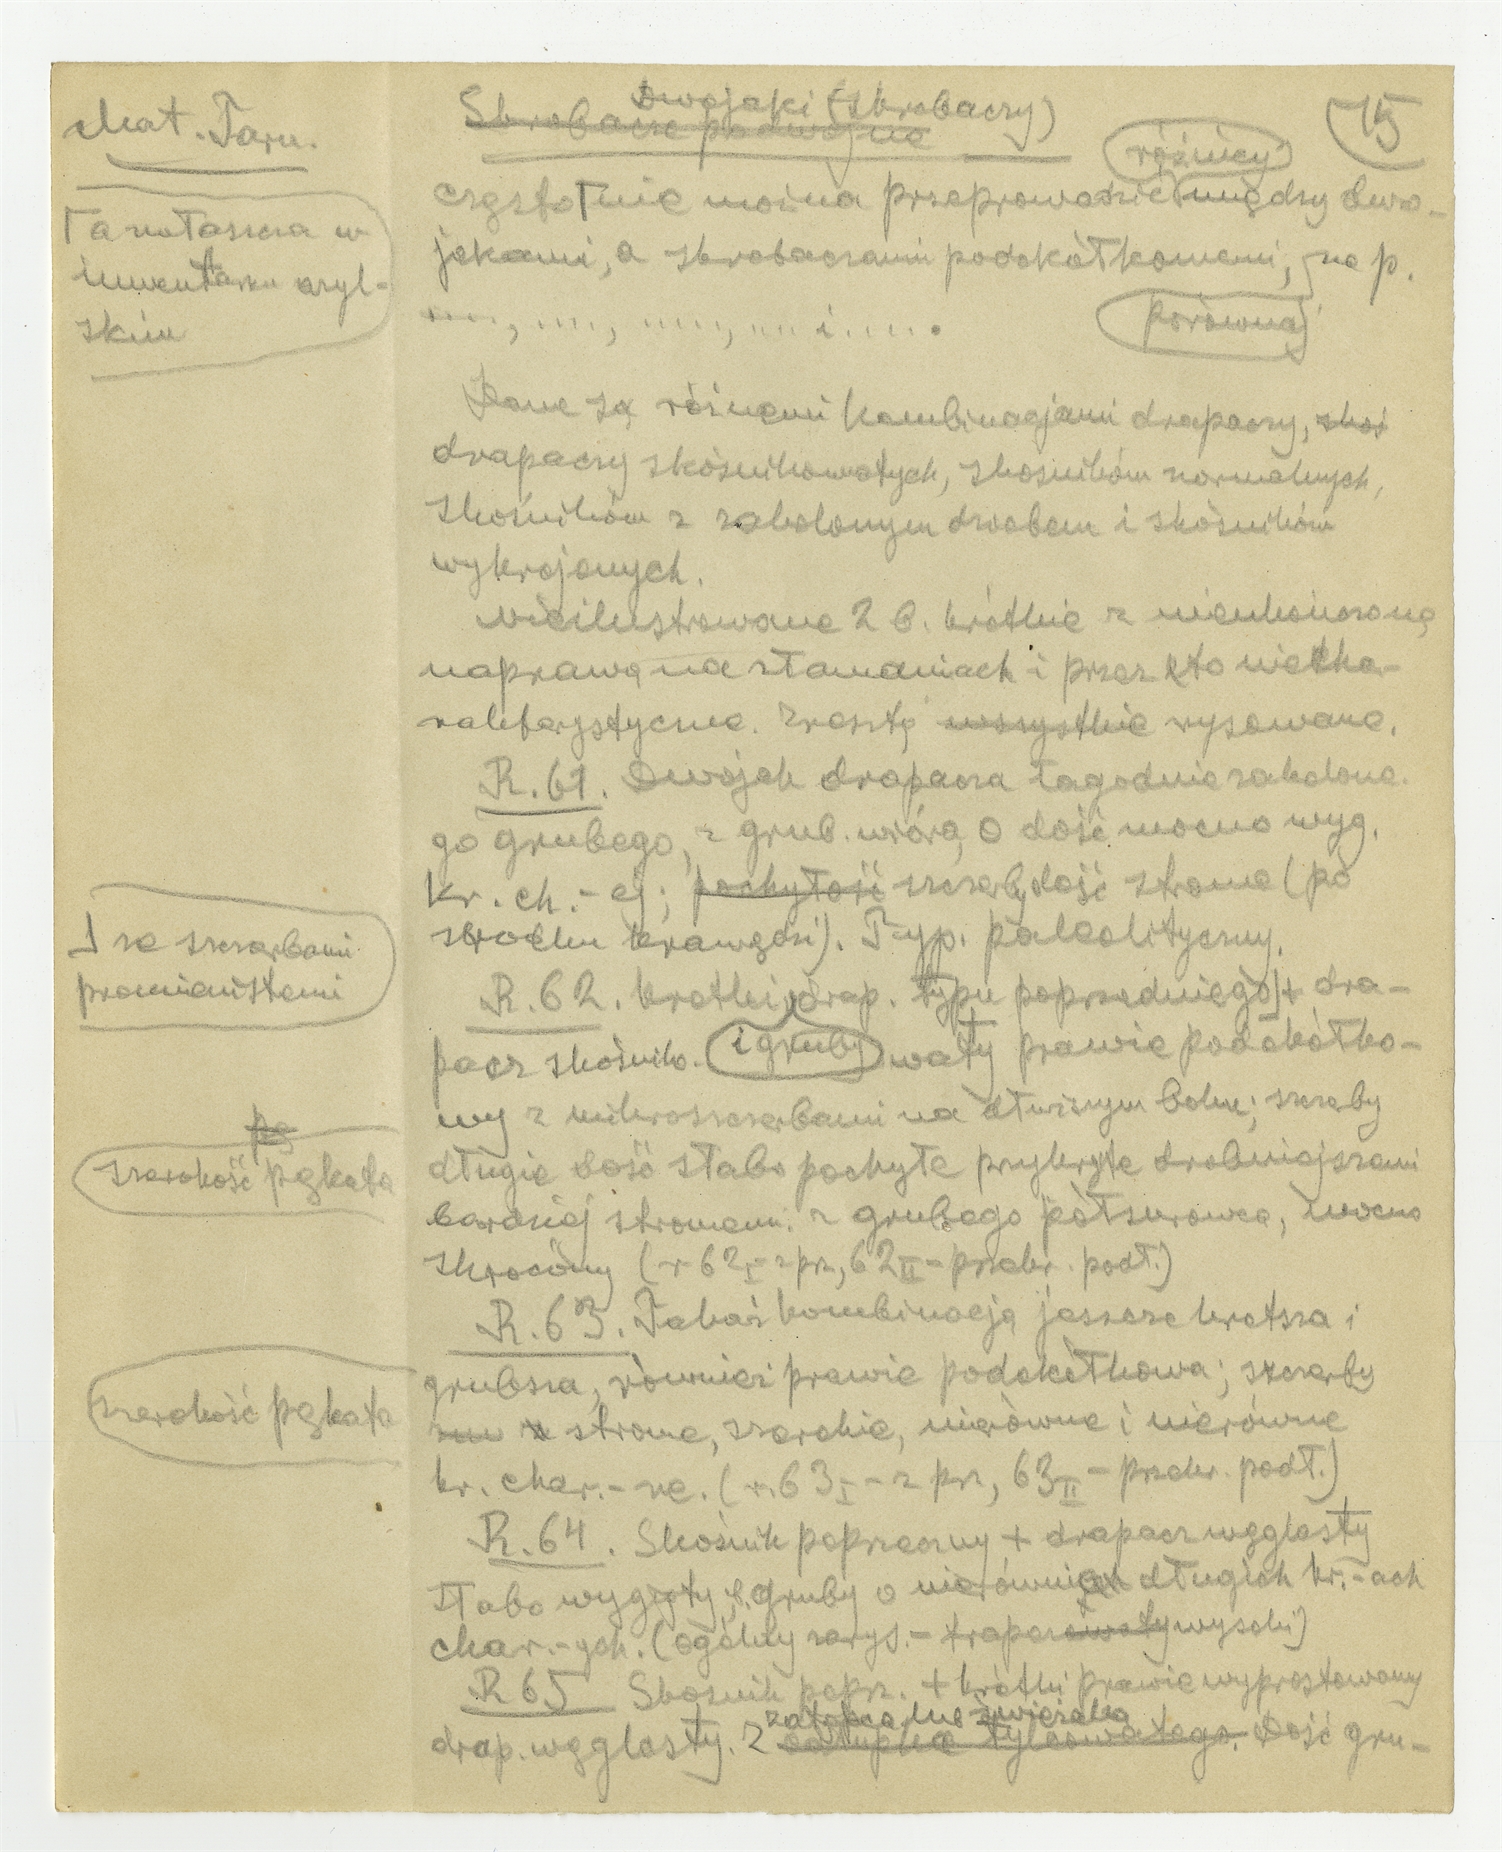 Mat. Tarn.
Dwojaki (skrobaczy)
Skrobacze podwójne
15
różnicy
cz
nie można przeprowadzić między dwo-
jakami, a skrobaczami podokółkowemi, np.
....., ...., ....., .... i .....
porównaj
Γ a zwłaszcza w
inwentarzu azyl-
skim
Dane są różnemi kombinacjami drapaczy, skoś
drapaczy skośnikowatych, skośników normalnych,
skośników z zakolonym dziobem i skośników
wykrojonych.
Nieilustrowane 2 b. krótkie z nieukończoną
naprawą na złamaniach i przez to niecha-
rakterystyczne. Zresztą wszystkie rysowane.
R. 61. Dwojak drapacza łagodnie zakolone-
go grubego, z grub. wióra, o dość mocno wyg.
kr. ch.-ej; pochyłość szczerby dość strome (po
środku krawędzi). Typ. paleolityczny.
⅃ ze szczerbami
promienistemi
R. 62. krótki drap. typu poprzedniego + dra-
pacz skośniko. i gruby waty prawie podokółko-
wy z mikroszczerbami na dłuższym boku; szczerby
długie dość słabo pochyłe przykryte drobniejszemi
bardziej stromemi. z grubego półsurowca, mocno
skrócony (r 62I - z prz, 62II - przekr. podł.)
pę
szerokość pękata
R. 63. Takaż kombinacja jeszcze krótsza i
grubsza, również prawie podokółkowa; szczerby
strome, szerokie, nierówne i nierówne
kr. char.-ne. (r. 63I - z prz, 63II - przekr. podł.)
szerokość pękata
R. 64. Skośnik poprzeczny + drapacz węglasty
słabo wygięty, b. gruby o nierównie długich kr.-ach
char.-ych. (ogólny zarys - trapezowaty wysoki)
R 65 Skośnik poprz. + krótki prawie wyprostowany
drap. węglasty. Z tylcowatego. Dość gru-